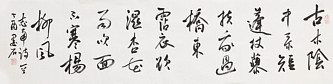 古木陰
中系短
篷杖藜
扶我過
橋東
霑衣欲
濕杏花
雨吹面
不寒楊
柳風